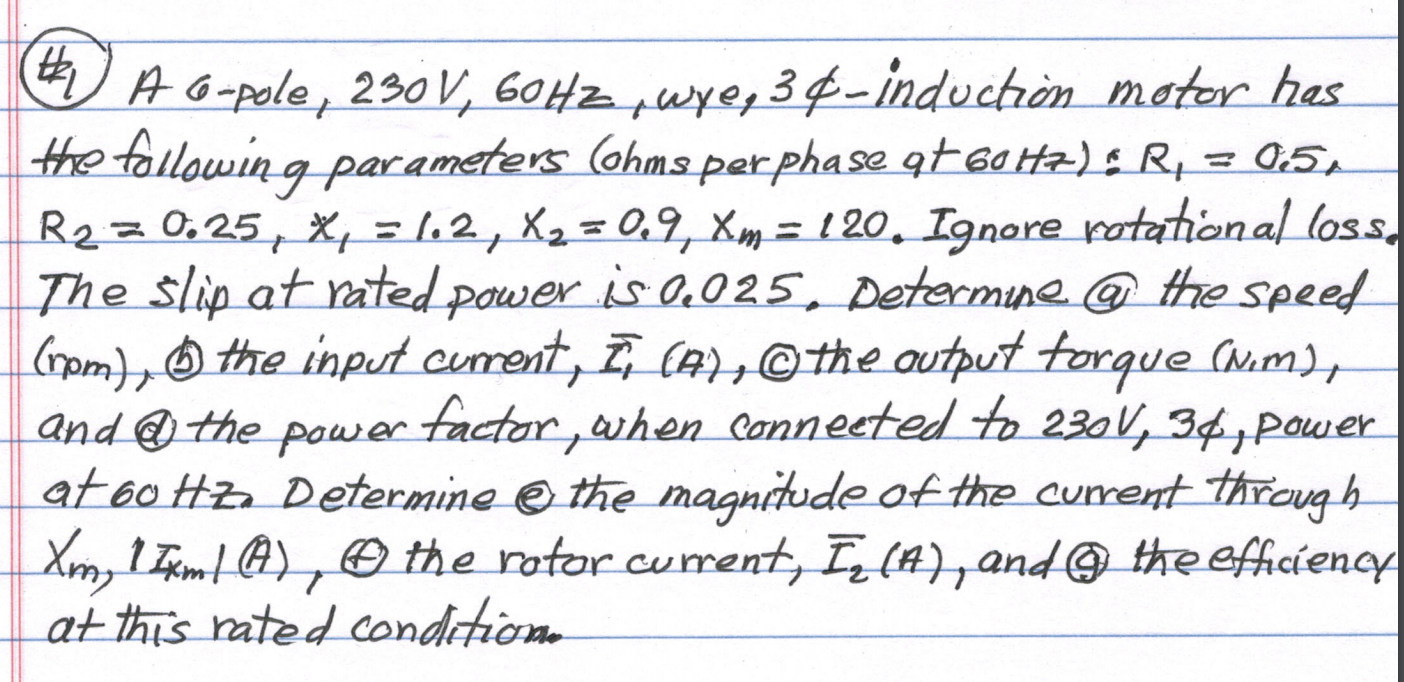 #1 A 6-pole, 230V, 60Hz, wye, 3ϕ-induction motor has
the following parameters (ohms per phase at 60Hz): R₁ = 0.5,
R₂ = 0.25, X₁ = 1.2, X₂ = 0.9, Xm = 120. Ignore rotational loss.
The slip at rated power is 0.025. Determine ⓐ the speed
(rpm), ⓑ the input current, Ī₁ (A), ⓒ the output torque (N.m),
and ⓓ the power factor, when connected to 230V, 3ϕ, power
at 60 Hz. Determine ⓔ the magnitude of the current through
Xm, |Ixm| (A), ⓕ the rotor current, Ī₂ (A), and ⓖ the efficiency
at this rated condition.